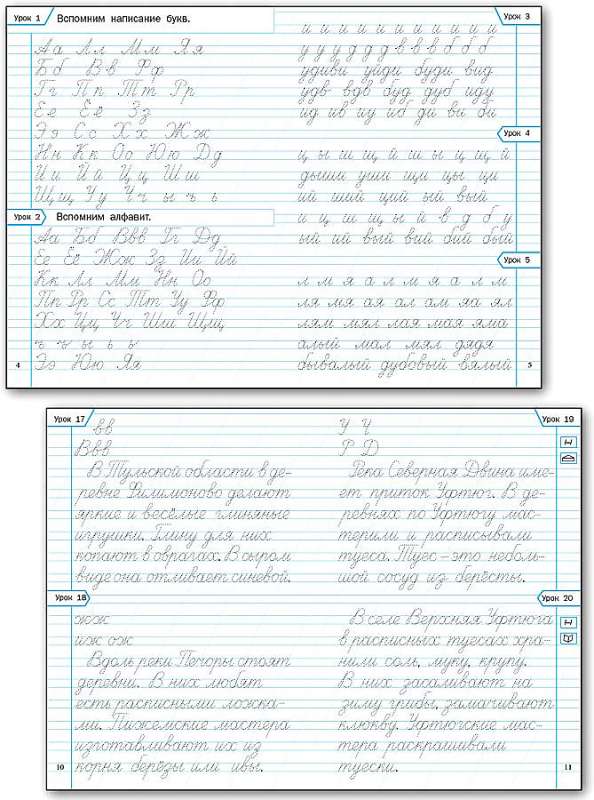 Урок 1
Вспомним написание букв.
Аа Лл Мм Яя
Бб Вв Рф
Гг Пп Тт Рр
Ее Ёё Зз
Ээ Сс Хх Жж
Нн Кк Оо Юю Дд
Ии Йй Цц Шш
Щщ Уу Чч ы ъ ь
Урок 2
Вспомним алфавит.
Аа Бб Ввв Гг Дд
Ее Ёё Жж Зз Ии Йй
Кк Лл Мм Нн Оо
Пп Рр Сс Тт Уу Фф
Хх Цц Чч Шш Щщ
ъ ы ь
Ээ Юю Яя
4
Урок 3
и и и и и и и и и и и
у у у д д д в в в б б б
удиви уйди буди вид
удв вдв буд дуб иду
ид ив иу иб ди ви би
Урок 4
ц ы ш щ й ш ы ц щ й
дыши уши щи цы ци
ий ший щий ый вый
и ц ш щ ы й в д б у
ый ий вый вий бий бый
Урок 5
л м я а л м я а л м
ля мя ая ал ам яа ял
лям мял лая мая яма
алый мал мял дядя
бывалый дубовый вялый
5
Урок 17
вв
Ввв
В Тульской области в де-
ревне Филимоново делают
яркие и весёлые глиняные
игрушки. Глину для них
копают в оврагах. В сыром
виде она отливает синевой.
Урок 18
жж
иж ож
Вдоль реки Печоры стоят
деревни. В них любят
есть расписными ложка-
ми. Пижемские мастера
изготавливают их из
корня берёзы или ивы.
10
Урок 19
У Ч
Р Д
Река Северная Двина име-
ет приток Уфтюг. В де-
ревнях по Уфтюгу мас-
терили и расписывали
туеса. Туес – это неболь-
шой сосуд из берёсты.
Урок 20
В селе Верхняя Уфтюга
в расписных туесах хра-
нили соль, муку, крупу.
В них засаливают на
зиму грибы, замачивают
клюкву. Уфтюгские мас-
тера раскрашивали
туески.
11